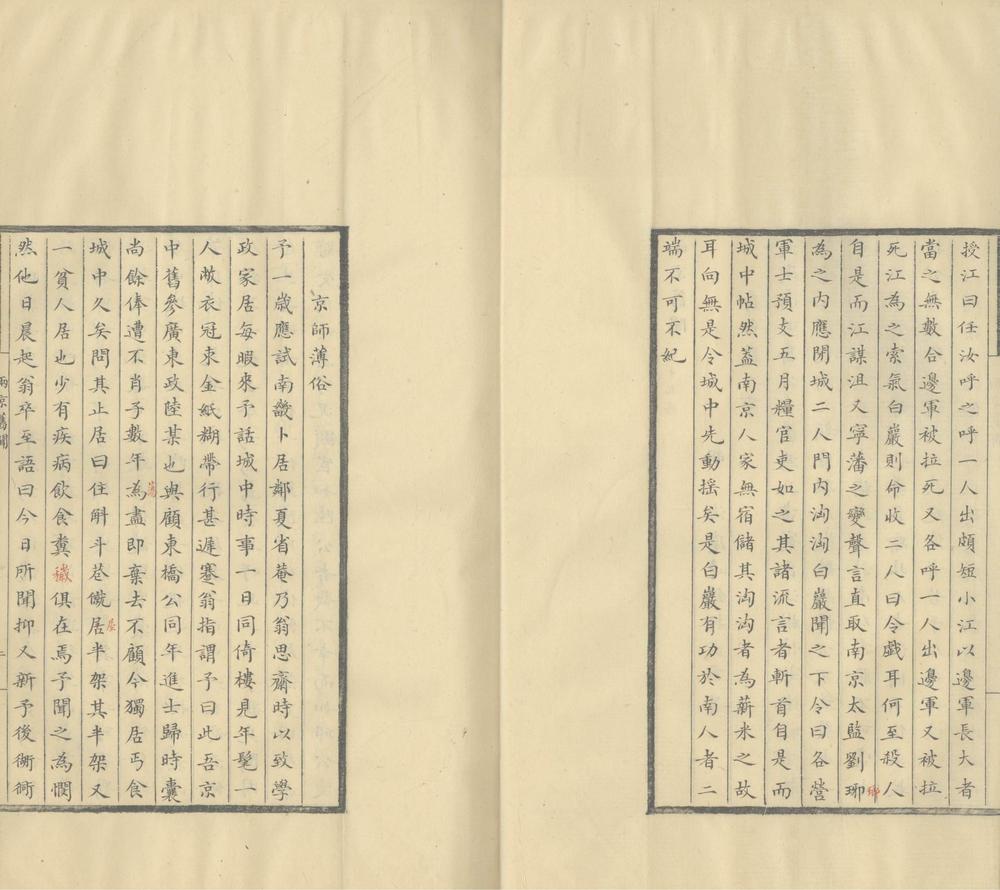 授江曰任汝呼之呼一人出頗短小江以邊軍長大者
當之無數合邊軍被拉死又各呼一人出邊軍又被拉
死江為之索氣白巖則命收二人曰令戲耳何至殺人
自是而江謀沮又寧藩之變聲言直取南京太監劉琊
鄉
為之內應閉城二人門內洶洶白巖聞之下令曰各營
軍士預支五月糧官吏如之其諸流言者斬首自是而
城中帖然蓋南京人家無宿儲其洶洶者為薪米之故
耳向無是令城中先動搖矣是白巖有功於南人者二
端不可不紀
京師薄俗
予一歲應試南畿卜居鄰夏省菴乃翁思齋時以致學
政家居每暇來予話城中時事一日同倚樓見年髦一
人敝衣冠束金紙糊帶行甚遲蹇翁指謂予曰此吾京
中舊參廣東政陸某也與顧東橋公同年進士歸時囊
尚餘俸遭不肖子數年為盡即棄去不顧今獨居丐食
蕩
城中久矣問其止居曰住斛斗巷僦居半架其半架又
屋
一貧人居也少有疾病飲食糞穢俱在焉予聞之為憫
然他日晨起翁卒至語曰今日所聞抑又新予後衚衕
兩京舊聞
二